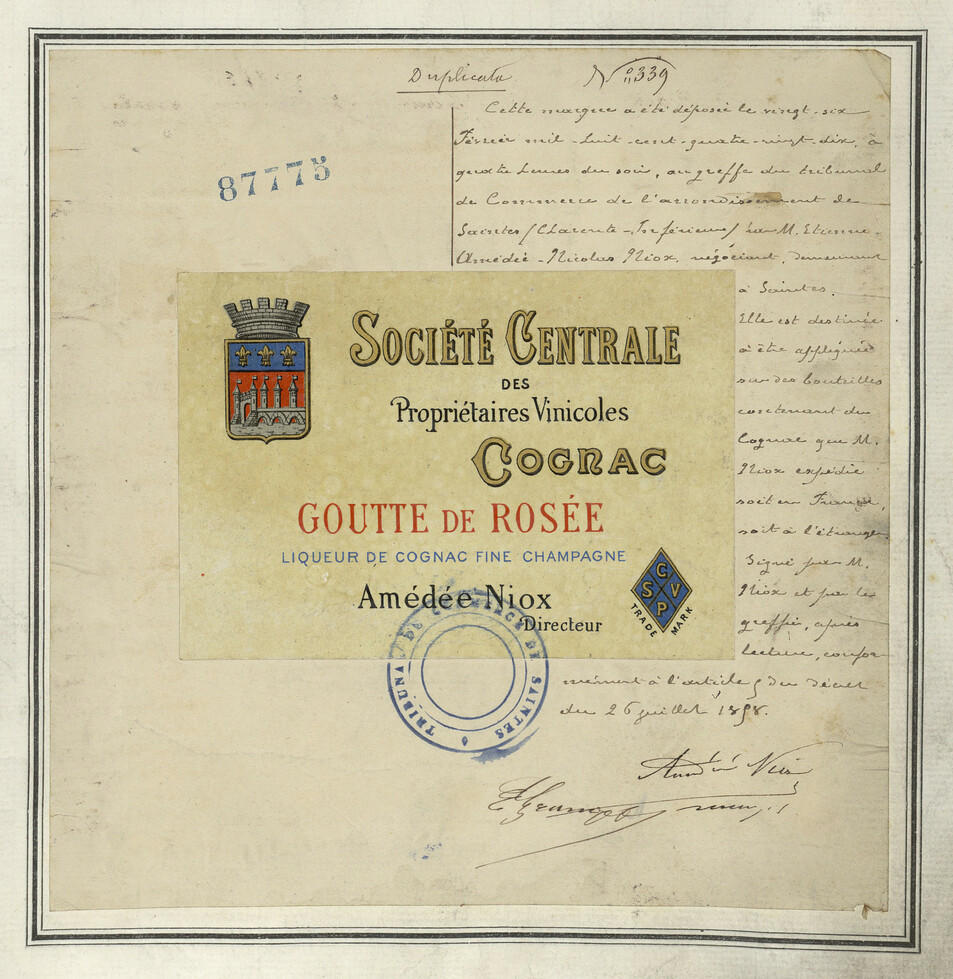 Duplicata
N° 339
87775
Cette marque a été déposée le vingt-six
Février mil-huit-cent-quatre-vingt-dix, à
quatre heures du soir, au greffe du tribunal
de Commerce de l'arrondissement de
Saintes (Charente-Inférieure) par M. Etienne-
Amédée-Nicolas Niox, négociant, demeurant
à Saintes.
Elle est destinée
à être appliquée
sur des bouteilles
contenant du
Cognac que M.
Niox expédie
soit en France,
soit à l'étranger.
Signé par M.
Niox et par le
greffier, après
lecture, confor-
mément à l'article 5 du décret
du 26 juillet 1858.
SOCIÉTÉ CENTRALE
DES
Propriétaires Vinicoles
COGNAC
GOUTTE DE ROSÉE
LIQUEUR DE COGNAC FINE CHAMPAGNE
Amédée Niox
Directeur
C
S V
P
TRADE MARK
TRIBUNAL DE COMMERCE DE SAINTES
Amédée Niox